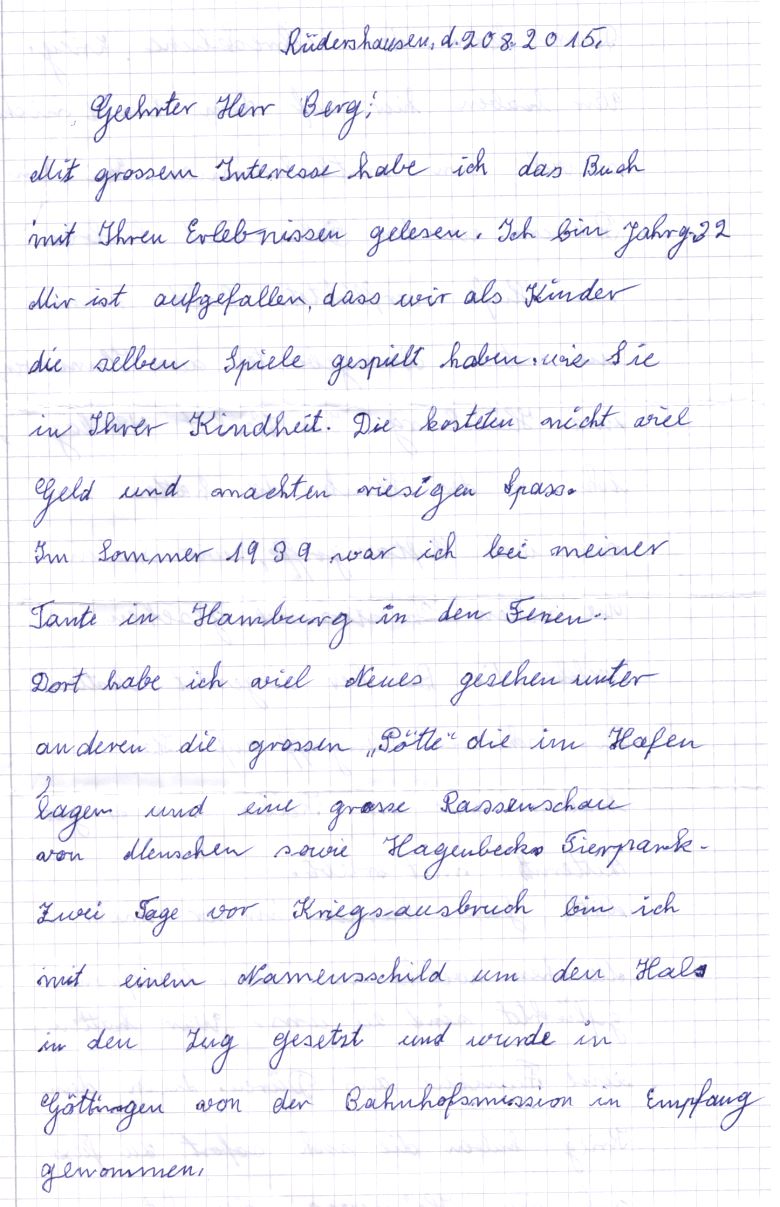 Rüdershausen, d. 208.2015.
Geehrter Herr Berg!
Mit grossem Interesse habe ich das Buch
mit Ihren Erlebnissen gelesen. Ich bin Jahrg. 32
Mir ist aufgefallen, dass wir als Kinder
die selben Spiele gespielt haben. wie Sie
in Ihrer Kindheit. Die kosteten nicht viel
Geld und machten riesigen Spass.
Im Sommer 1939 war ich bei meiner
Tante in Hamburg in den Ferien.
Dort habe ich viel Neues gesehen unter
anderen die grossen „Pötte“ die im Hafen
lagen und eine grosse Rassenschau
von Menschen sowie Hagenbecks Tierpark.
Zwei Tage vor Kriegsausbruch bin ich
mit einem Namensschild um den Hals
in den Zug gesetzt und wurde in
Göttingen von der Bahnhofsmission in Empfang
genommen.